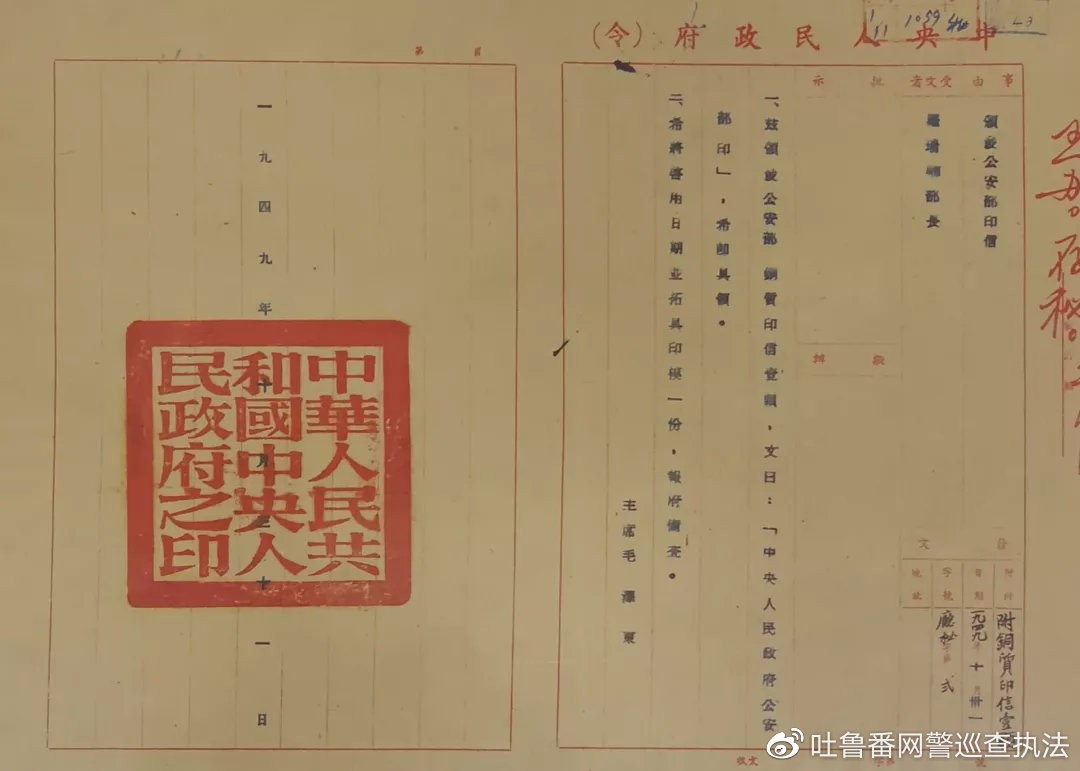 中央人民政府（令）
事由
頒發公安部印信
受文者
羅瑞卿部長
批示
擬辦
發文
附件
附銅質印信壹
日期
一九四九年十月卅一
字號
廳秘字第弍
地址
一、茲頒發公安部銅質印信壹顆，文曰：「中央人民政府公安
部印」，希卽具領。
二、希將啓用日期並拓具印模一份，報府備查。
主席毛澤東
一九四九年十月三十一日
中華人民共
和國中央人
民政府之印
第 頁
收文 字 號
1059
@吐鲁番网警巡查执法